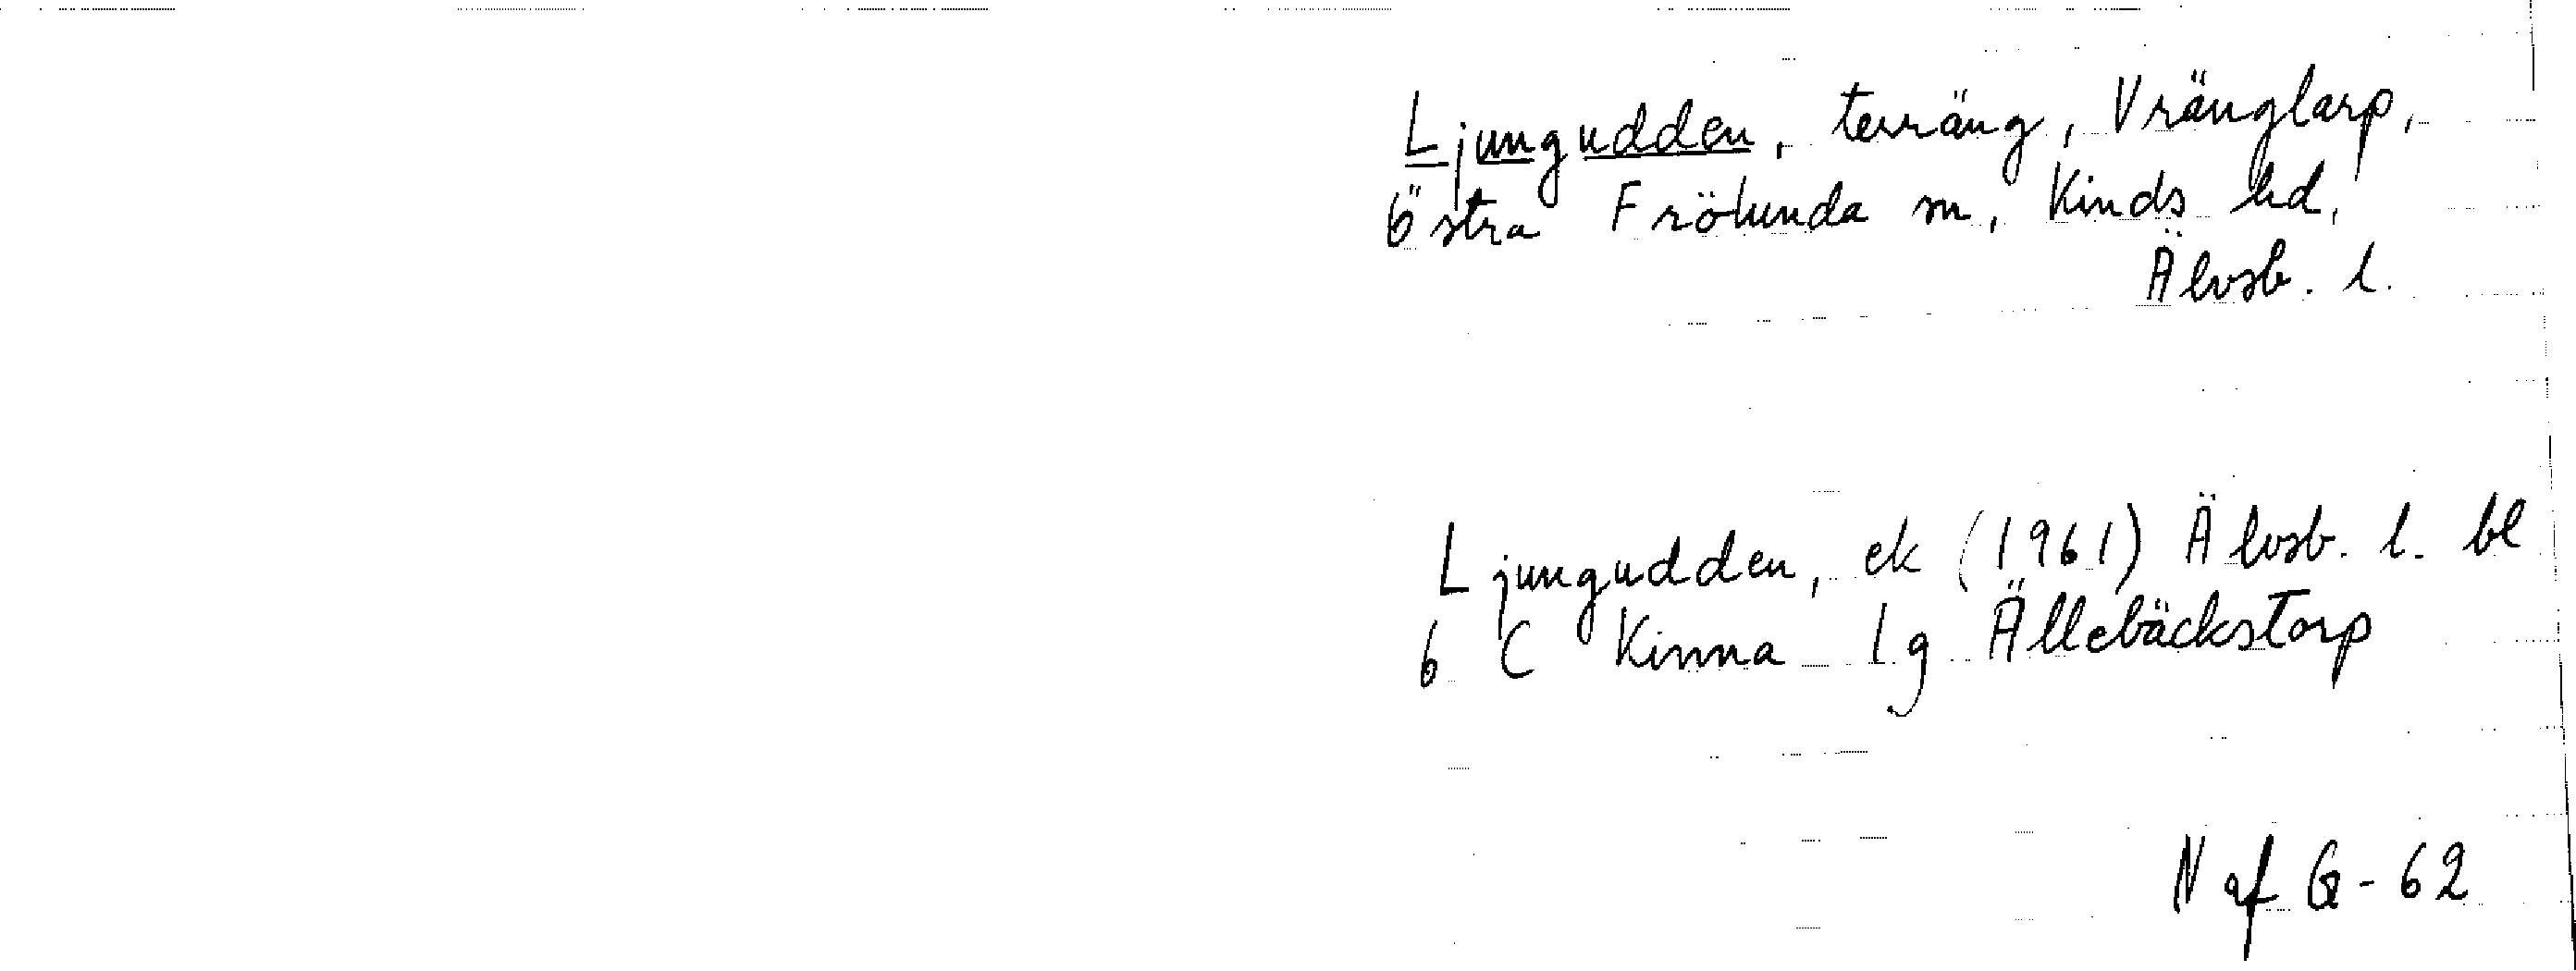 Ljungudden, terräng, Vränglarp,
Östra Frölunda sn, Kinds hd,
Älvsb. l.
Ljungudden, ek (1961) Älvsb. l. bl
6 C Kinna 1g Ällebäckstorp
N af G-62